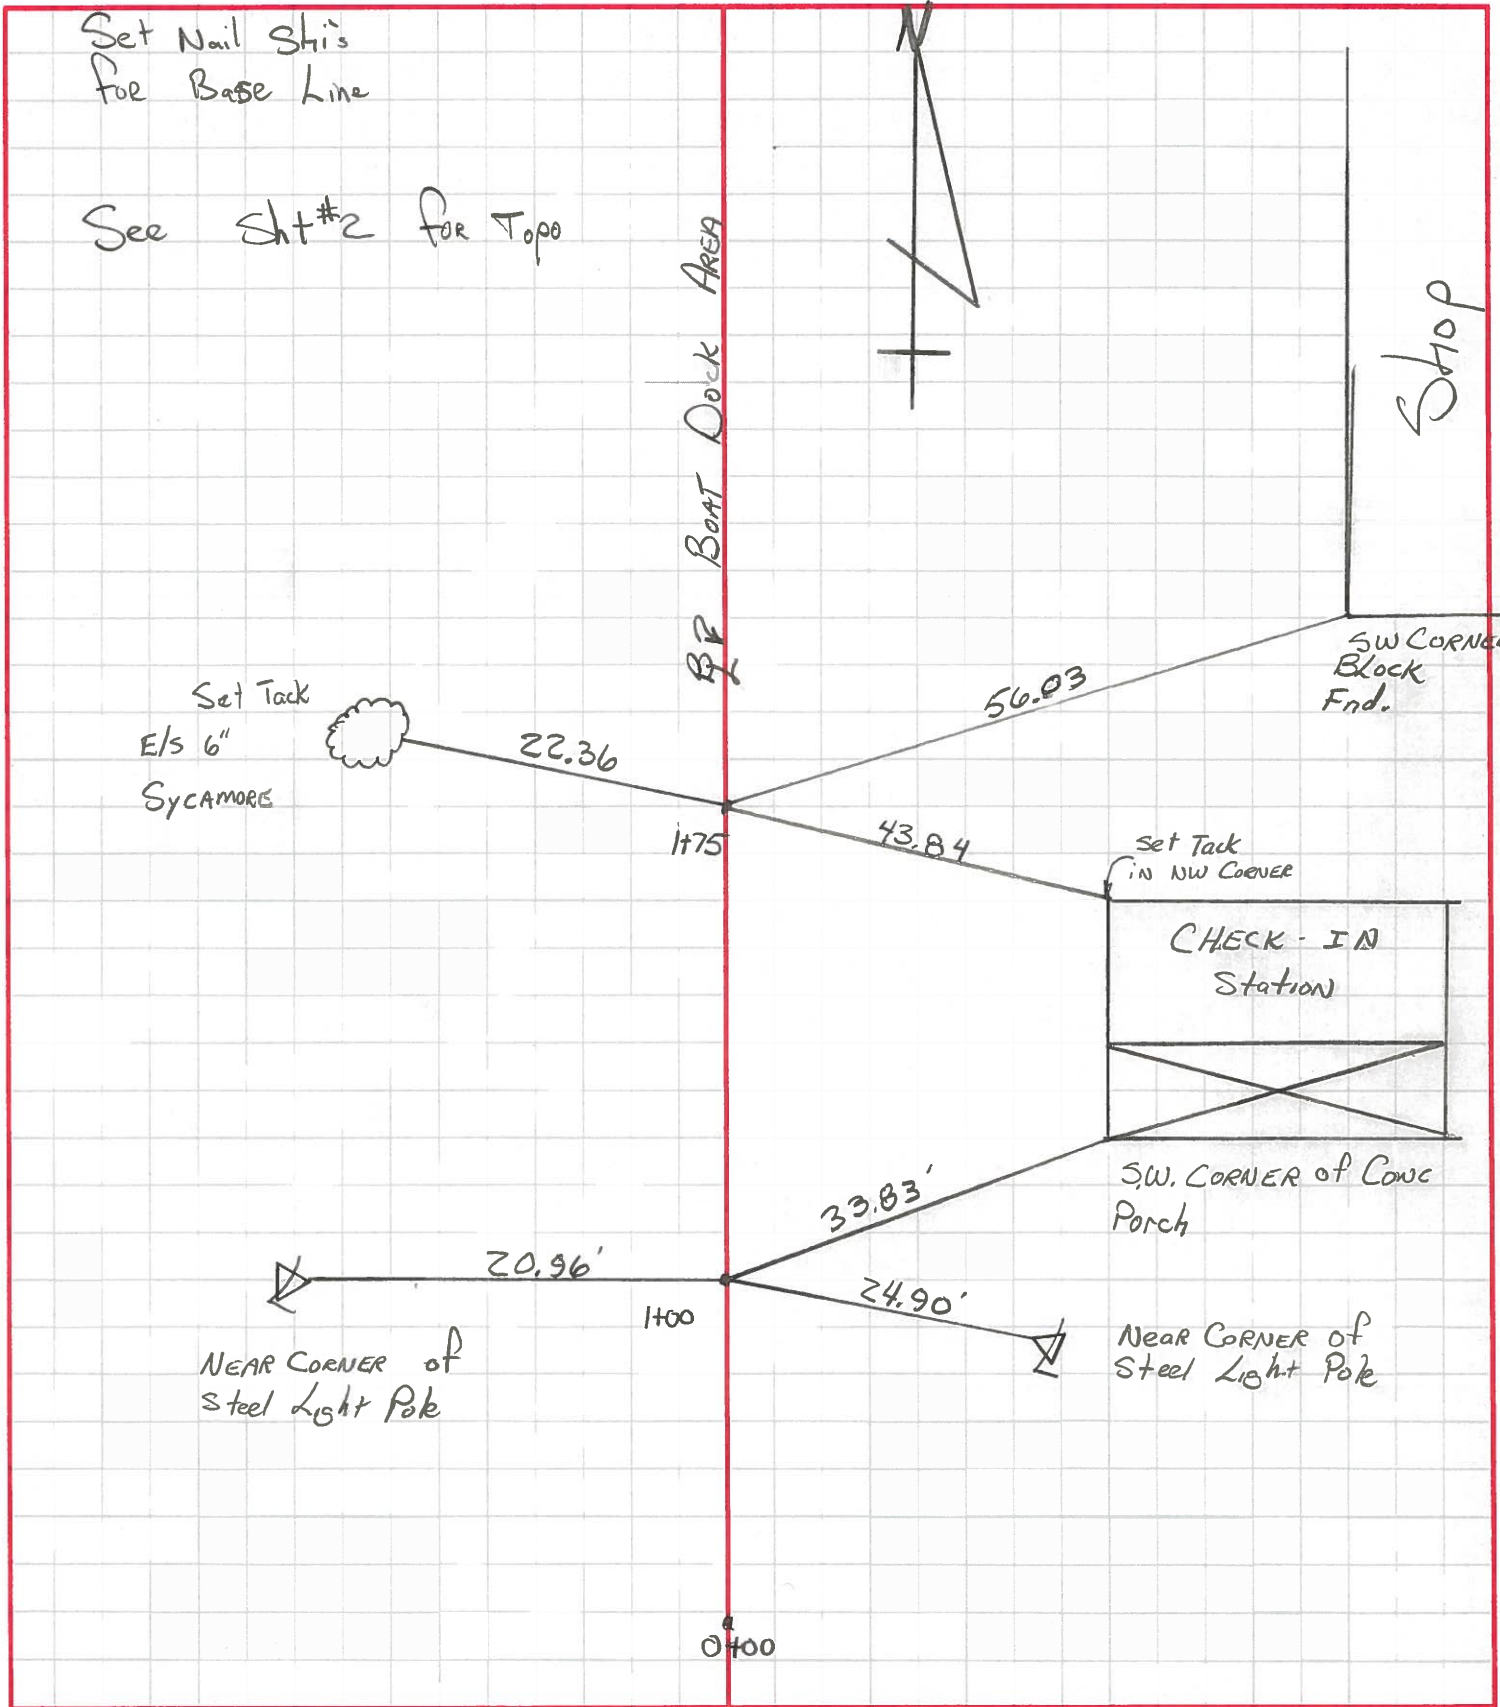 Set Nail Stk's
for Base Line
See Sht #2 for Topo
N
Boat Dock Area
Shop
SW Corner
Block
Fnd.
56.03
Set Tack
E/S 6"
Sycamore
22.36
1+75
43.84
Set Tack
in NW Corner
Check-In
Station
S.W. Corner of Conc
Porch
33.83'
20.96'
24.90'
1+00
Near Corner of
Steel Light Pole
Near Corner of
Steel Light Pole
0+00